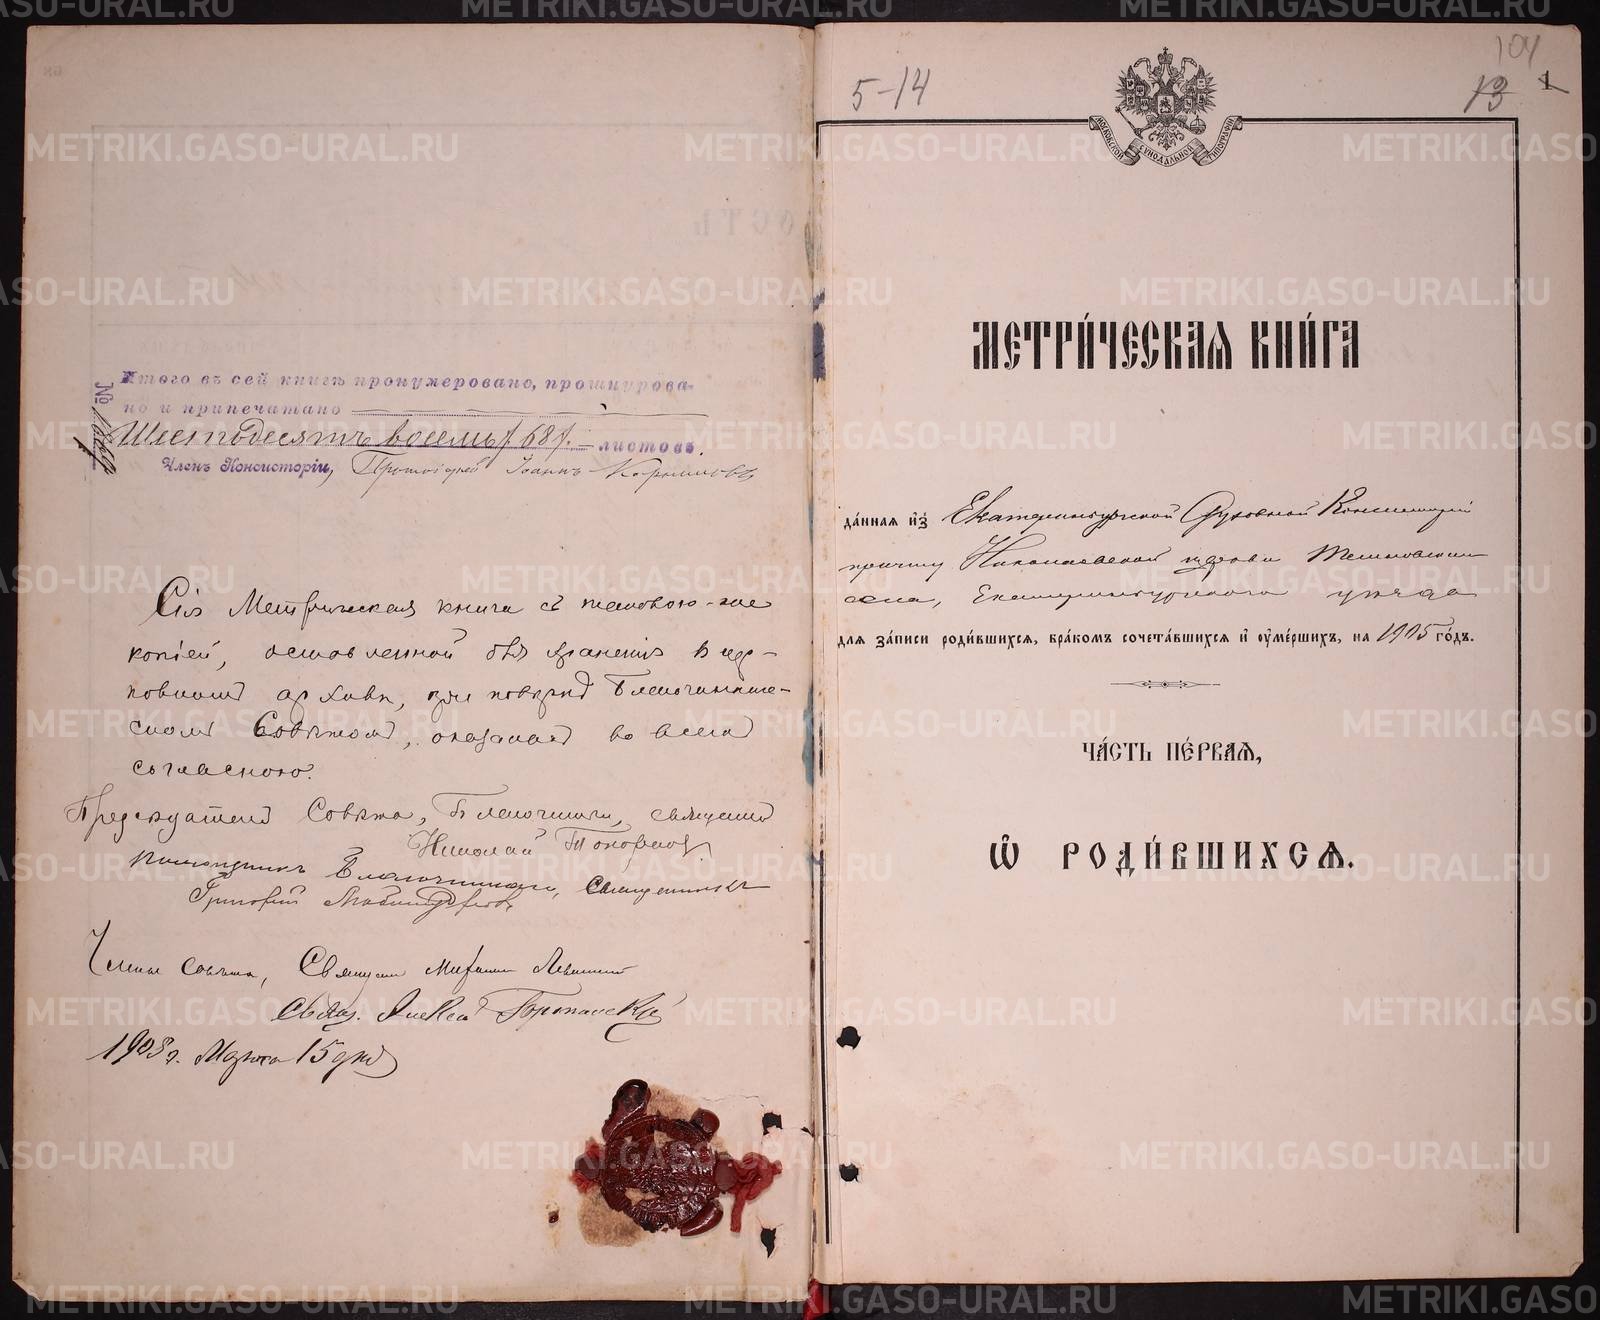 Итого въ сей книгѣ пронумеровано, прошнурова-
но и припечатано
Шестьдесятъ восемь /68/. листовъ.
Членъ Консисторіи, Протоіерей Іоаннъ
№
Сія Метрическая книга съ таковою-же
копіей, оставленной для храненія въ цер-
ковномъ архивѣ, при повѣркѣ Благочинниче-
скимъ Совѣтомъ, оказалась во всемъ
согласною.
Предсѣдатель Совѣта, Благочинный, священникъ
Николай Топорковъ.
Помощникъ Благочиннаго, Священникъ
Григорій
Члены совѣта, Священникъ
Свящ. Алексѣй
1908 г. Марта 15 дня
5-14
104
13 1
МОСКОВСКОЙ СѴНОДАЛЬНОЙ ТИПОГРАФІИ
МЕТРИ́ЧЕСКАѦ КНИ́ГА
да́ннаѧ и҆з̾ Екатеринбургской Духовной Консисторіи
причту Николаевской церкви
села, Екатеринбургскаго уѣзда
для за́писи роди́вшихсѧ, бра́комъ сочета́вшихсѧ и҆ ᲂу҆ме́ршихъ, на 1905 го́дъ.
ЧА́СТЬ ПЕ́РВАѦ,
Ѽ РОДИ́ВШИХСѦ.
METRIKI.GASO-URAL.RU